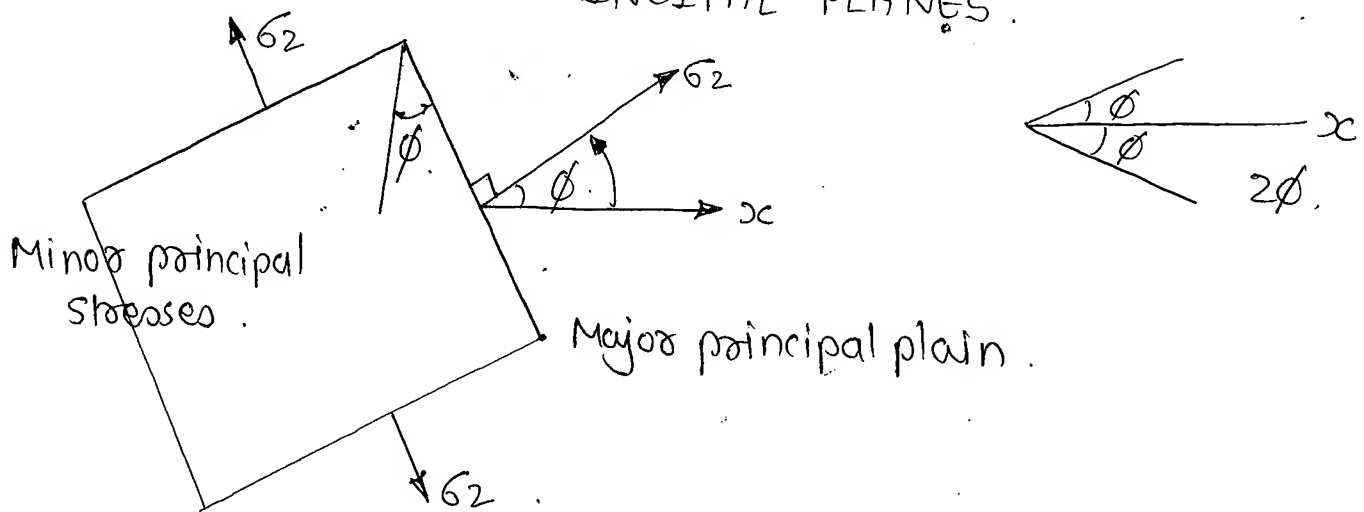 PLANES.
σ2
σ2
φ
φ
x
φ
φ
x
2φ.
Minor principal
stresses.
Major principal plain.
σ2.